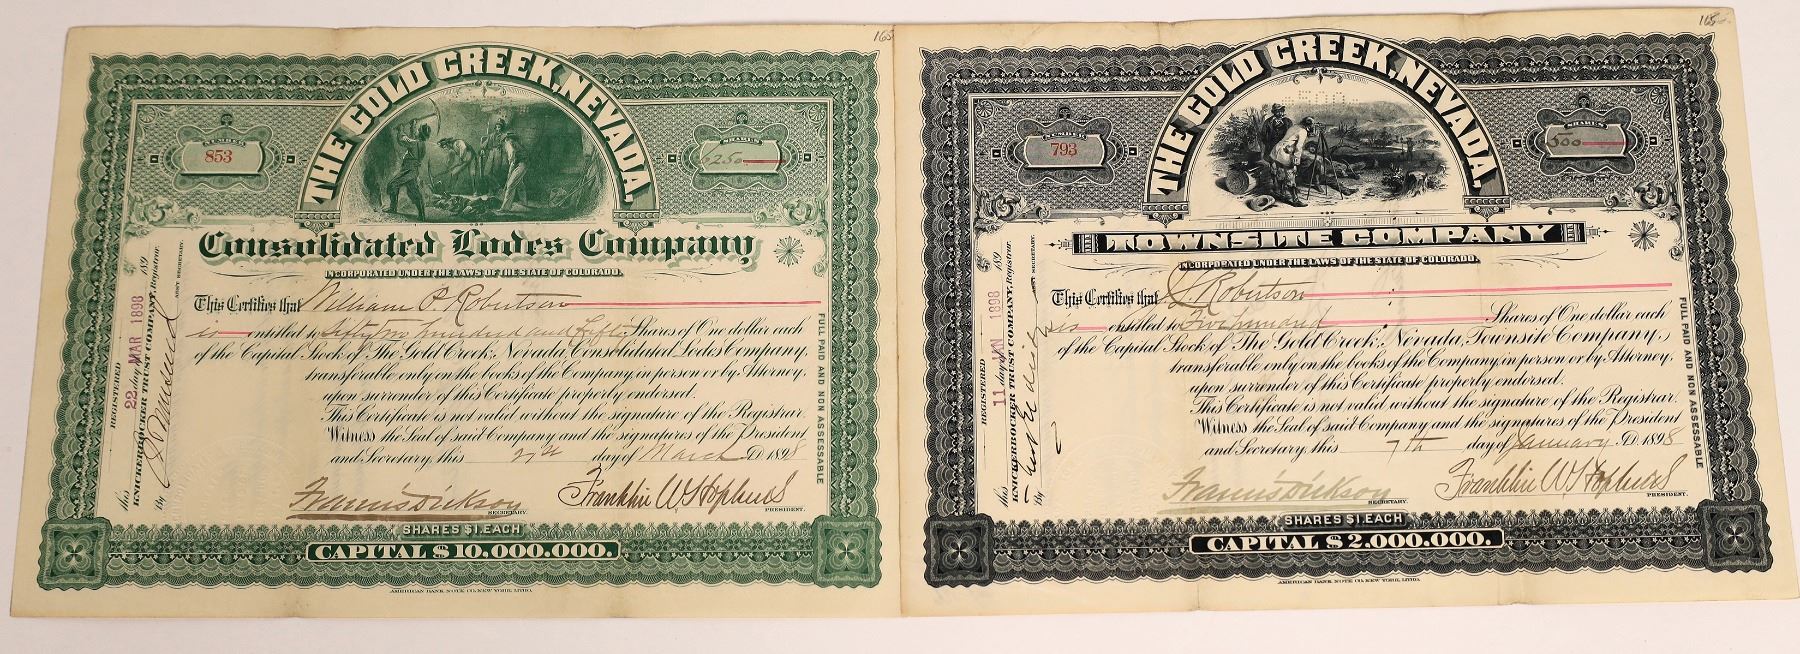 165
THE GOLD CREEK, NEVADA,
NUMBER
853
SHARES
6250
Consolidated Lodes Company
INCORPORATED UNDER THE LAWS OF THE STATE OF COLORADO.
This Certifies that William P. Robertson
is entitled to Sixty two hundred and fifty Shares of One dollar each
of the Capital Stock of The Gold Creek, Nevada, Consolidated Lodes Company,
transferable only on the books of the Company in person or by Attorney,
upon surrender of this Certificate properly endorsed.
This Certificate is not valid without the signature of the Registrar.
Witness the Seal of said Company and the signatures of the President
and Secretary, this 21st day of March A.D. 1898
Francis Dickson
SECRETARY.
Franklin W. Hopkins
PRESIDENT.
SHARES $1. EACH
CAPITAL $10,000,000.
AMERICAN BANK NOTE CO. NEW YORK, LITHO.
REGISTERED
this 22 day of MAR 1898 189
KNICKERBOCKER TRUST COMPANY, Registrar.
By
ASST. SECRETARY.
FULL PAID AND NON ASSESSABLE
165
THE GOLD CREEK, NEVADA,
NUMBER
793
SHARES
500
TOWNSITE COMPANY
INCORPORATED UNDER THE LAWS OF THE STATE OF COLORADO.
This Certifies that Robertson
is entitled to Five hundred Shares of One dollar each
of the Capital Stock of The Gold Creek, Nevada, Townsite Company,
transferable only on the books of the Company in person or by Attorney,
upon surrender of this Certificate properly endorsed.
This Certificate is not valid without the signature of the Registrar.
Witness the Seal of said Company and the signatures of the President
and Secretary, this 7th day of January A.D. 1898
Francis Dickson
SECRETARY.
Franklin W. Hopkins
PRESIDENT.
SHARES $1. EACH
CAPITAL $2,000,000.
AMERICAN BANK NOTE CO. NEW YORK, LITHO.
REGISTERED
this 11 day of JAN 1898 189
KNICKERBOCKER TRUST COMPANY, Registrar.
By
ASST. SECRETARY.
FULL PAID AND NON ASSESSABLE